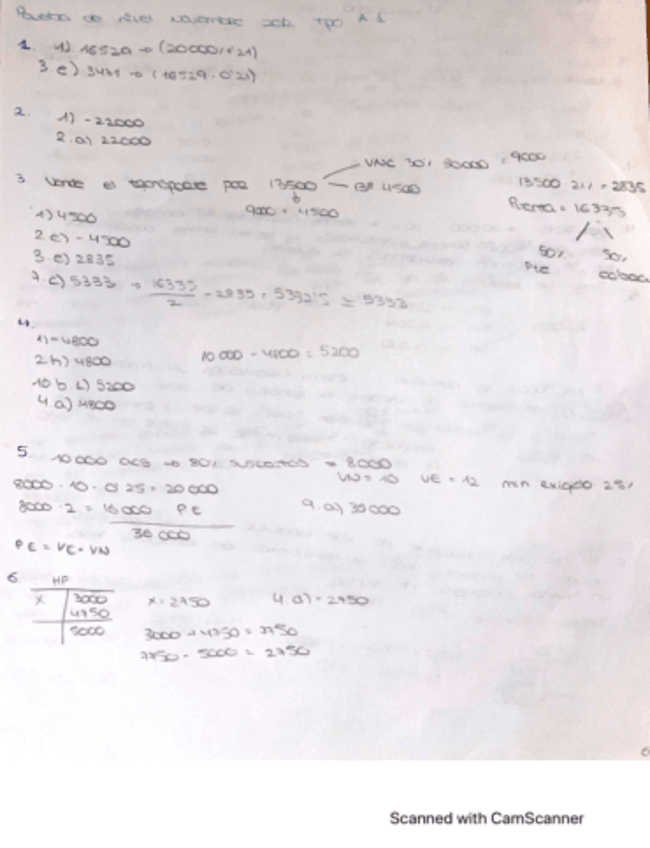 Prueba de nivel Noviembre 2012 Tipo A.1
1. 1) 16529 → (20000/1'21)
3. e) 3471 → (16529 · 0'21)
2. 1) -22000
2. a) 22000
3 Vende el transporte por 13500
VNC 30% 30000 = 9000
Bº 4500
9000 + 4500
13500 21% = 2835
= 16335
50% 50%
Pte
1) 4500
2 e) - 4500
3. e) 2835
7. c) 5333 → 16335/2 - 2835 = 5332'5 ≃ 5333
4
1) -4800
2 h) 4800
10 b. b) 5200
4. a) 4800
10 000 - 4800 = 5200
5. 10 000 acs → 80% suscritos = 8000
VN = 10 VE = 12 min exigido 25%
8000 · 10 · 0'25 = 20 000
8000 · 2 = 16 000 P.E
36 000
9. a) 36000
PE = VE - VN
6. HP
X 3000
4750
5000
x = 2750
4. a) - 2750
3000 + 4750 = 7750
7750 - 5000 = 2750
Scanned with CamScanner